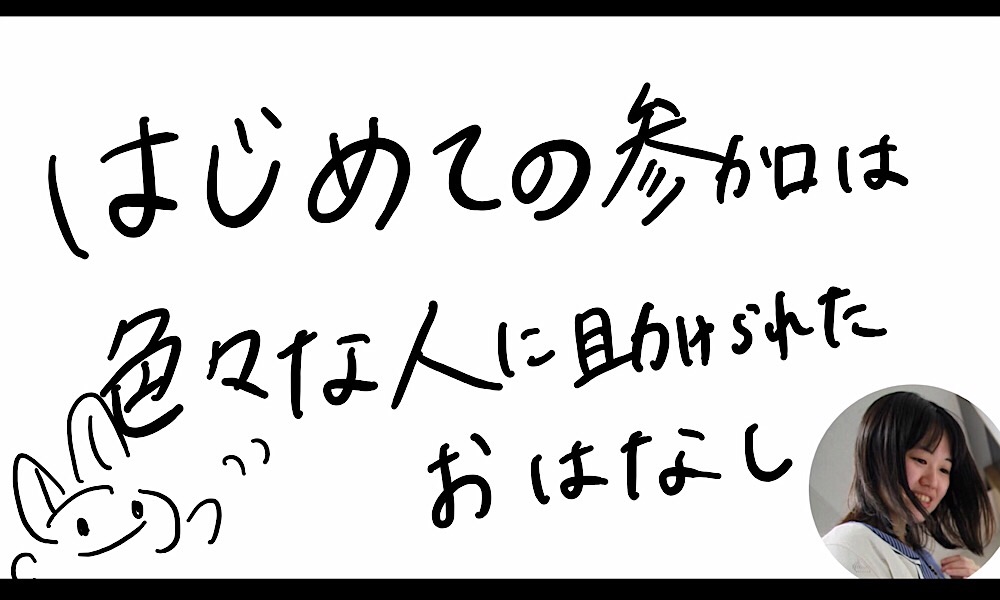 はじめての参加は
色々な人に助けられた
おはなし